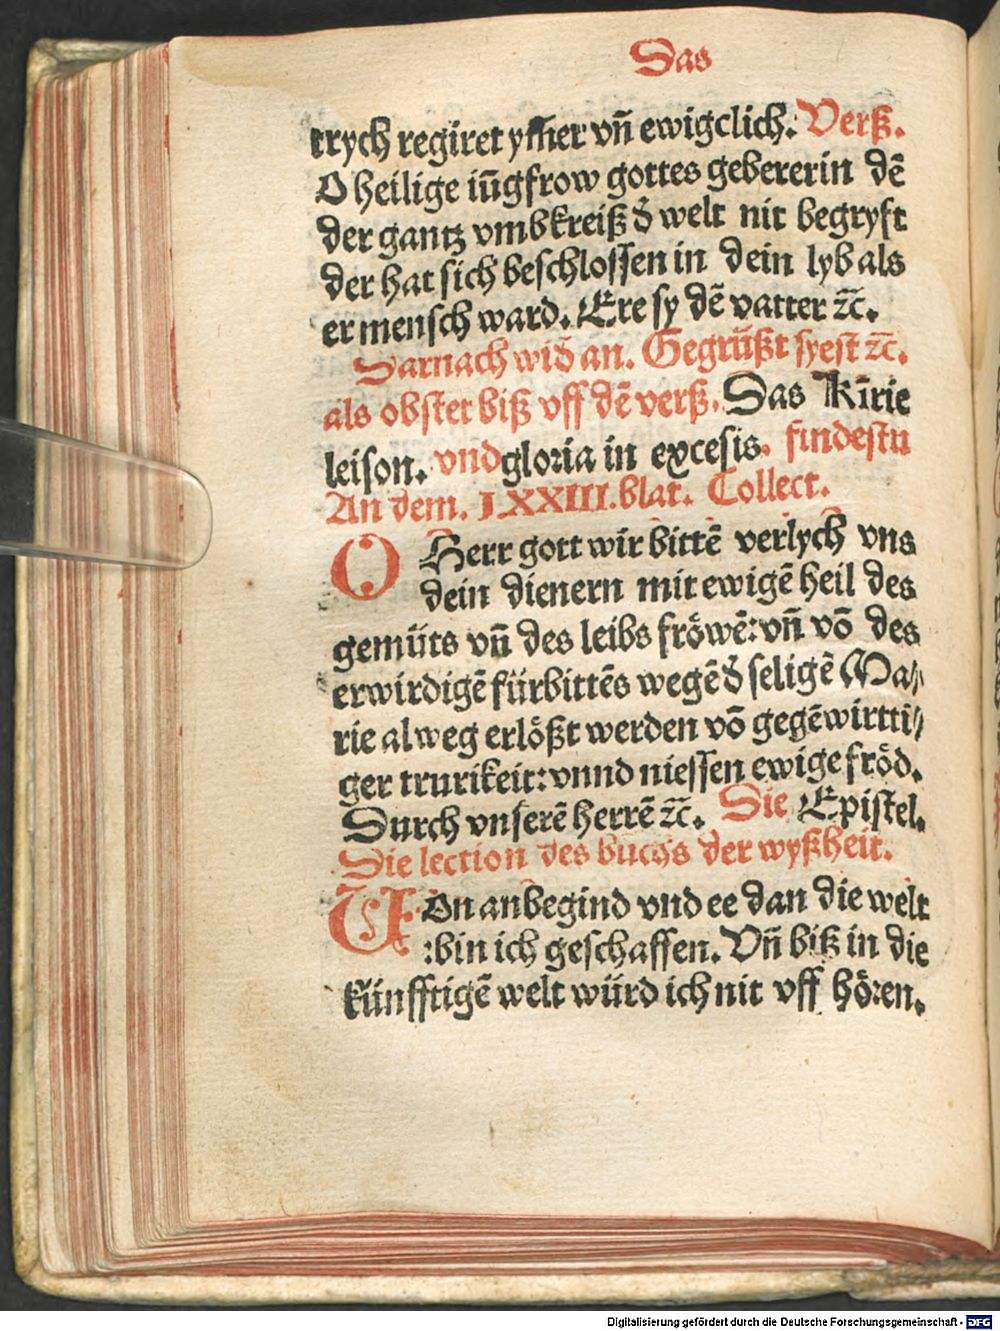 Das
trych regiret ym̃er vñ ewigclich. Verß.
O heilige iũgfrow gottes gebererin dẽ
der gantz vmbkreiß d̕ welt nit begryft
der hat sich beschlossen in dein lyb als
er mensch ward. Ere sy dẽ vatter ⁊c̃.
Darnach wid̕ an. Gegrüßt syest ⁊c̃.
als obstet biß vff dẽ verß. Das Kirie
leison. vnd gloria in excesis. findestu
An dem. LXXIII. blat. Collect.
O Herr gott wir bittẽ verlych vns
dein dienern mit ewigẽ heil des
gemüts vñ des leibs fröwẽ: vñ võ des
erwirdigẽ fürbittẽs wegẽ d̕ seligẽ Ma⸗
rie alweg erlößt werden võ gegẽwirtti⸗
ger trurikeit: vnnd niessen ewige fröd.
Durch vnserẽ herrẽ ⁊c̃. Die Epistel.
Die lection des buchs der wyßheit.
VOn anbegind vnd ee dan die welt
:bin ich geschaffen. Vñ biß in die
künfftigẽ welt würd ich nit vff hören.
Digitalisierung gefördert durch die Deutsche Forschungsgemeinschaft - DFG